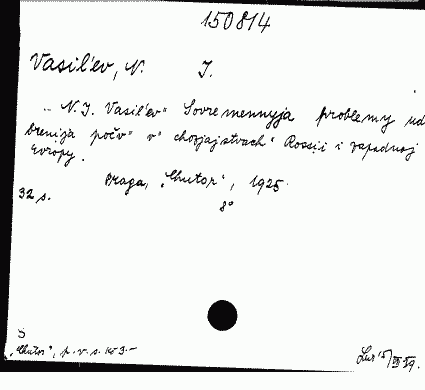 150814
Vasil'ev, N. I.
N.I. Vasil'ev" Sovremennyja problemy ud
brenija počv" v" chozjajstvach" Rossii i zapadnoj
Evropy.
Praga, "Chutor", 1925.
32 s. 8°
S
"Chutor", p. v. s. Kč 3.-